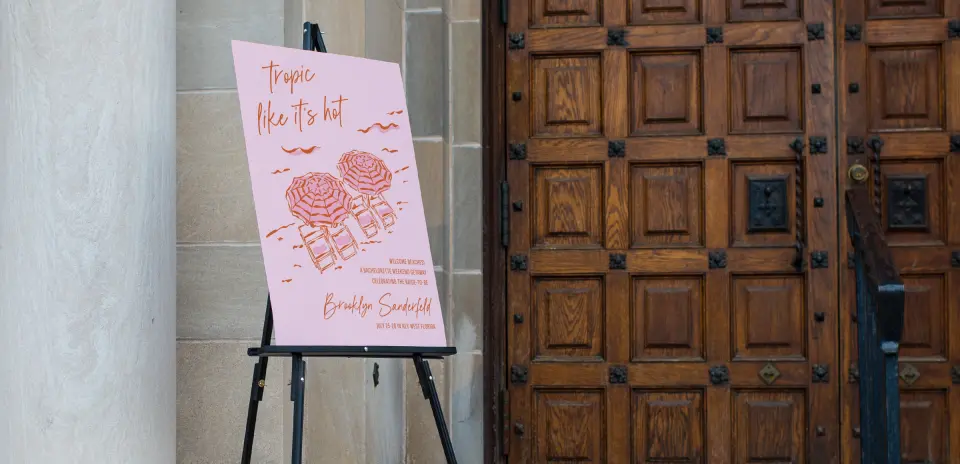 tropic
like it's hot
WELCOME BEACHES!
A BACHELORETTE WEEKEND GETAWAY
CELEBRATING THE BRIDE-TO-BE
Brooklyn Sanderfeld
IN KEY WEST FLORIDA